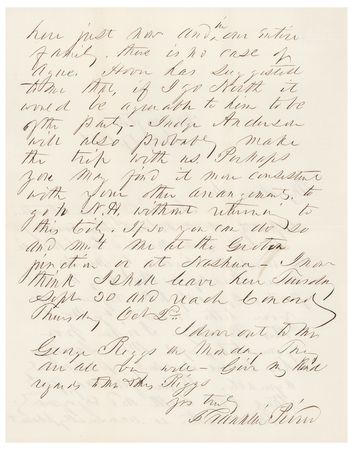 here just now and in our entire
family, there is no case of
Ague. Hoover has suggested
to me that, if I go North it
would be agreeable to him to be
of the party - Judge Anderson
will also probably make
the trip with us. Perhaps
you may find it more consistent
with your other arrangements, to
go to N.H. without returning to
this City. If so you can do so
and meet me at the Groton
junction or at Nashua - I now
think I shall leave here Tuesday
Sept 30 and reach Concord
Thursday Oct 2d.
I drove out to Mr
George Riggs on Monday. They
are all very well - Give my kind
regards to Mr & Mrs Riggs
Yrs truly
Franklin Pierce